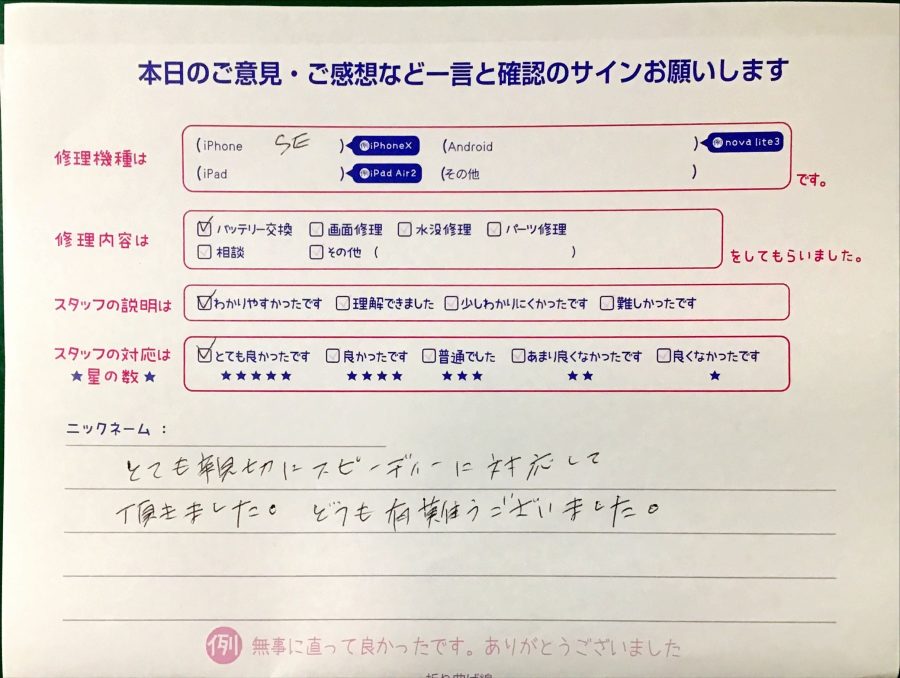 本日のご意見・ご感想など一言と確認のサインお願いします
修理機種は
(iPhone SE ) 例iPhoneX (Android ) 例nova lite3
(iPad ) 例iPad Air2 (その他 )
です。
修理内容は
バッテリー交換 画面修理 水没修理 パーツ修理
相談 その他 ( )
をしてもらいました。
スタッフの説明は
わかりやすかったです 理解できました 少しわかりにくかったです 難しかったです
スタッフの対応は
★星の数★
とても良かったです 良かったです 普通でした あまり良くなかったです 良くなかったです
★★★★★ ★★★★ ★★★ ★★ ★
ニックネーム：
とても親切にスピーディーに対応して
頂きました。どうも有難うございました。
例 無事に直って良かったです。ありがとうございました